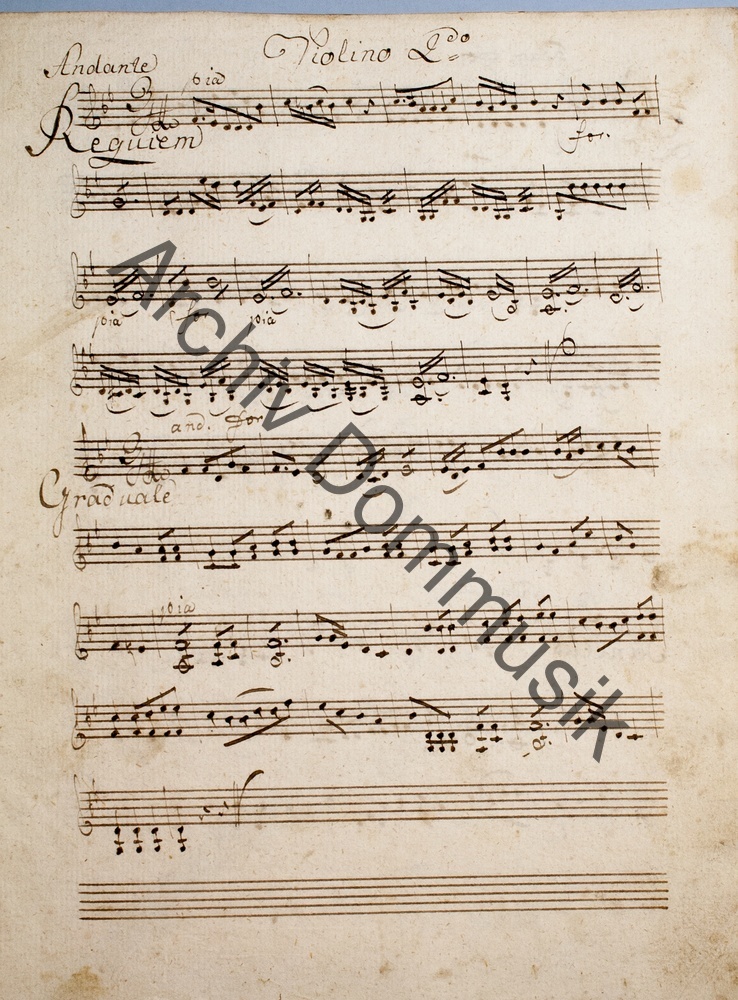 Violino 2do
Andante
pia
Requiem
for.
pia
pia
and. for
Graduale
pia
Archiv Dommusik